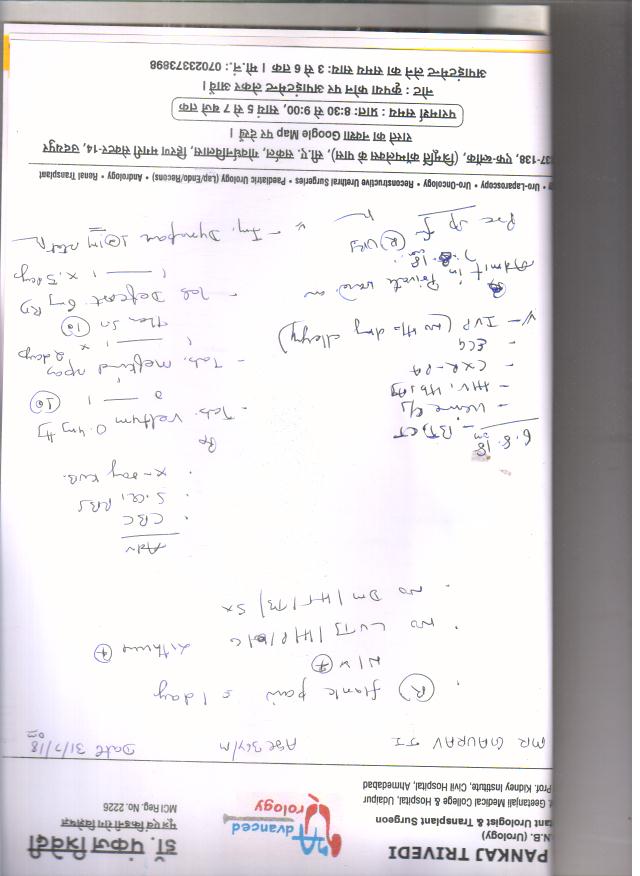 PANKAJ TRIVEDI
N.B. (Urology)
tant Urologist & Transplant Surgeon
Geetanjali Medical College & Hospital, Udaipur
Prof. Kidney Institute, Civil Hospital, Ahmedabad
Advanced
Urology
डॉ. पंकज त्रिवेदी
मूत्र एवं किडनी रोग विशेषज्ञ
MCI Reg. No. 2226
MR GAURAV JI
Age 36y/M
Date 31/7/18
(R) flank pain 1 day
N/V +
NO LUTS/
NO DM/HT/TB/Sx
Adv
CBC
S. Cr, RBS
X-ray KUB.
Rp
Tab. Veltam 0.4mg
10
Tab. Meftind spas
x 2 days
then SOS 10
Tab. Defcort 6mg
x 5 days
Inj. Dynapar 1 amp IM stat
6.8.18
BT, CT
Urine
HIV, HBsAg
CXR-PA
ECG
IVP (No H/o drug allergy)
Admit in Private ward on
8.18
(R) URS
37-138, एफ-ब्लॉक, (त्रिमूर्ति कॉम्पलेक्स के पास), सी.ए. सर्कल, गोवर्धनविलास, हिरण मगरी सेक्टर-14, उदयपुर
y • Uro-Laparoscopy • Uro-Oncology • Reconstructive Urethral Surgeries • Paediatric Urology (Lap/Endo/Recons) • Andrology • Renal Transplant
रास्ते का नक्शा Google Map पर देखें ।
परामर्श समय : प्रातः 8:30 से 9:00, सायं 5 से 7 बजे तक
नोट : कृपया फोन पर अपाइंटमेन्ट लेकर आवें ।
अपाइंटमेन्ट लेने का समय सायः 3 से 6 तक । मो.नं.: 07023373898